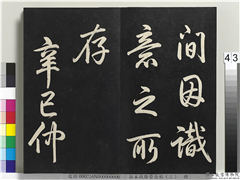 間因識
意之所
存
辛巳仲
43